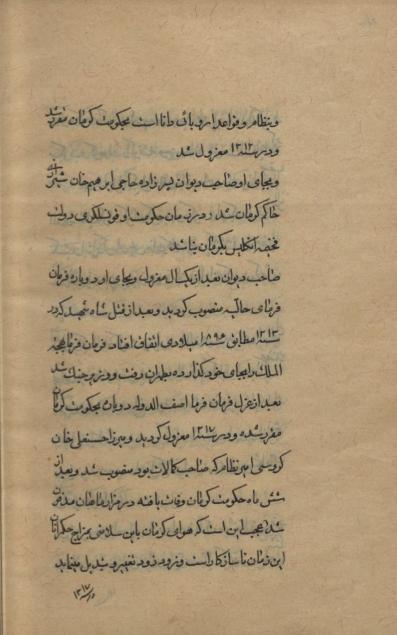 و بنظام و قواعد اروپائی دانا است بحکومت کرمان مقرر شد
و در سنه ۱۳۱۲ معزول شد
و بجای او صاحب دیوان پسر زاده حاجی ابرهیم خان شیرازی
حاکم کرمان شد و در زمان حکومت او قونسلگری دولت
فخیمه انگلیس بکرمان بنا شد
صاحب دیوان بعد از یکسال معزول و بجای او دوباره فرمان
فرمای حالیه منصوب گردید و بعد از قتل شاه شهید که در
سنه ۱۳۱۳ مطابق سنه ۱۸۹۵ میلادی اتفاق افتاد فرمان فرما بهجة
الملک را بجای خود گذارده بطهران رفت و وزیر جنگ شد
بعد از عزل فرمان فرما آصف الدوله دوباره بحکومت کرمان
مقرر شده و در سنه ۱۳۱۷ معزول گردید و میرزا حسنعلی خان
گروسی امیر نظام که صاحب کمالات بود منصوب شد و بعد از
شش ماه حکومت کرمان وفات یافته در مزار ماهان مدفون
شد عجب این است که هوای کرمان باین سلامتی بمزاج حکمرانان
این زمان ناسازگار است و زود زود تغییر و تبدیل مینماید
سنه ۱۳۱۷